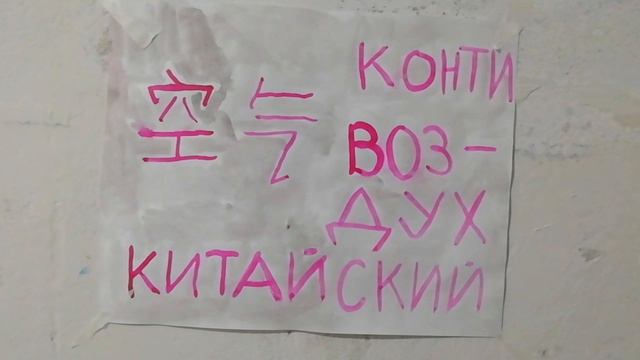 空气
КОНТИ
ВОЗ-
ДУХ
КИТАЙСКИЙ